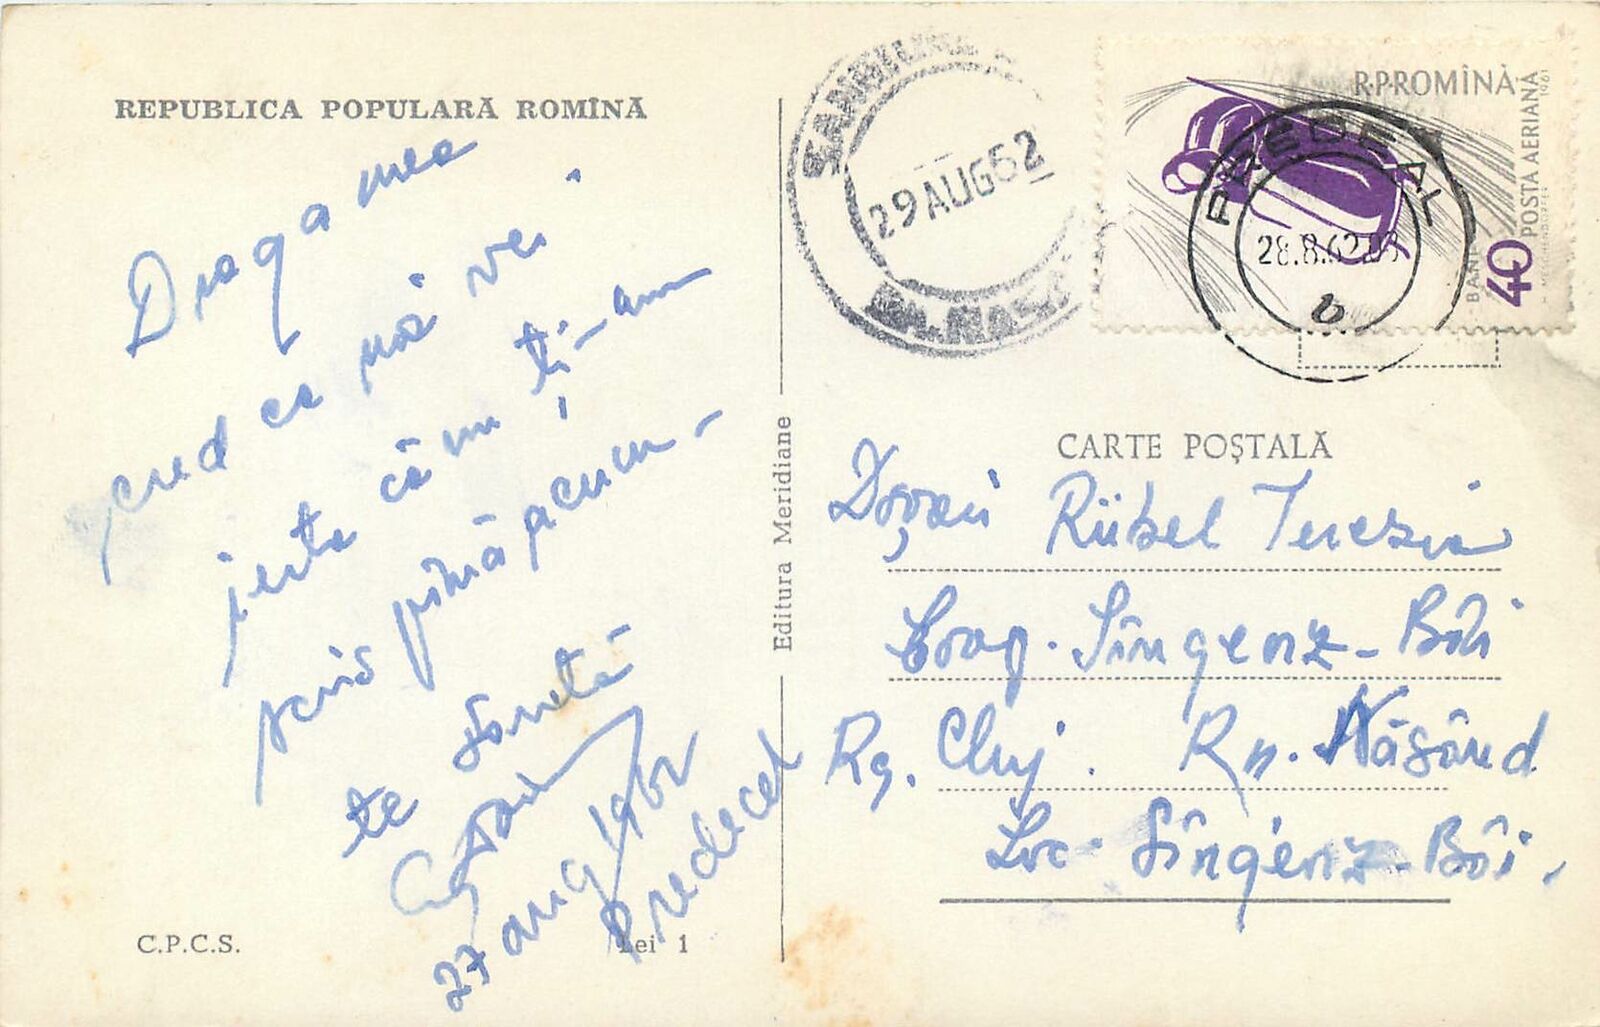 REPUBLICA POPULARĂ ROMÎNĂ
Draga mea
cred ca mă vei
ierta că nu ți-am
scris pînă acum -
te sărută
27 aug/1962
Predeal
C.P.C.S.
Lei 1
Editura Meridiane
29 AUG 62
R.P.ROMÎNĂ
POSTA AERIANA
1961
BANI
40
PREDEAL
28.8.62.08
b
CARTE POȘTALĂ
Rübel Terezia
Sîngenz-Băi
Rg. Cluj. Rn. Năsăud
Loc. Sîngenz-Băi.